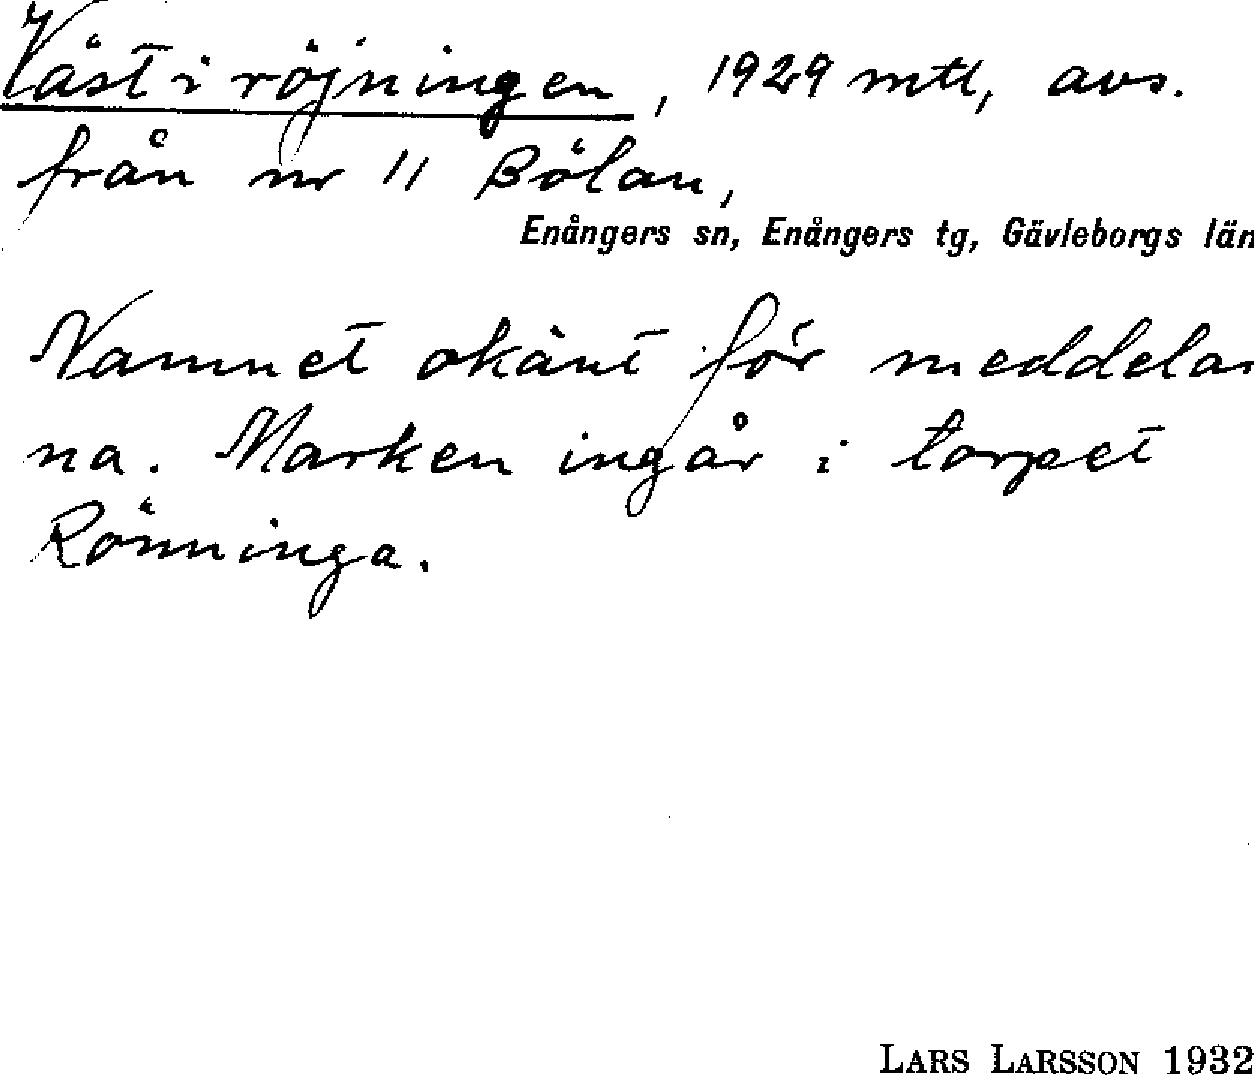 Väst i röjningen, 1929 mtl, avs.
från nr 11 Bölan,
Enångers sn, Enångers tg, Gävleborgs län
Namnet okänt för meddelar
na. Marken ingår i torpet
Rönninga.
LARS LARSSON 1932